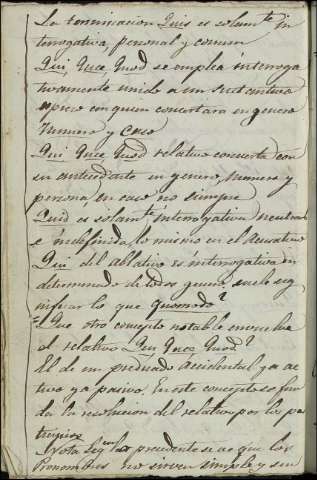 La terminacion Quis es solam.te in
terrogativa, personal y comun
Qui, Quæ, Quod se emplea interroga
tivamente unido a un sustantivo
con quien concertara en genero
numero y caso
Qui Quæ Quod relativo concierta con
su antecedente en genero, numero y
persona, en caso no siempre
Quid es solam.te interrogativa neutra
e indefinida, lo mismo en el acusativo
Qui del ablativo es interrogativa in
determinado de todos generos, suele sig
nificar lo que quomodo?
¿Que otro concepto notable envuelve
el relativo Qui Quæ Quod?
El de un predicado accidental ya ac
tivo ya pasivo. En este concepto se fun
da la resolucion del relativo por los par
ticipios
Nota Seg.n lo precedente se ve que los
Pronombres no sirven simple y sen